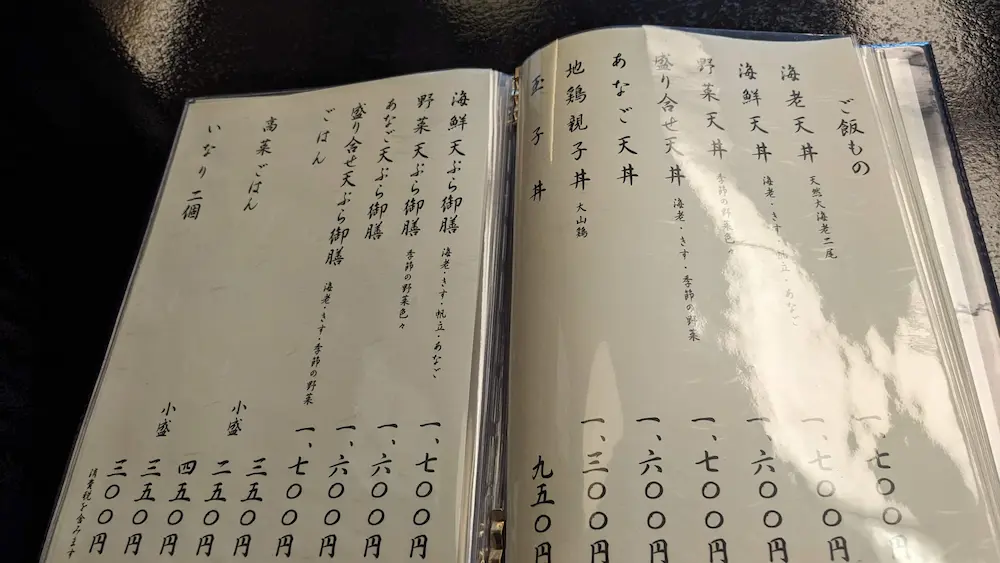 ご飯もの
海老天丼 天然大海老二尾 一、七〇〇円
海鮮天丼 海老・きす・帆立・あなご 一、七〇〇円
野菜天丼 季節の野菜色々 一、六〇〇円
盛り合せ天丼 海老・きす・季節の野菜 一、七〇〇円
あなご天丼 一、六〇〇円
地鶏親子丼 大山鶏 一、三〇〇円
玉子丼 九五〇円
海鮮天ぷら御膳 海老・きす・帆立・あなご 一、七〇〇円
野菜天ぷら御膳 季節の野菜色々 一、六〇〇円
あなご天ぷら御膳 一、六〇〇円
盛り合せ天ぷら御膳 海老・きす・季節の野菜 一、七〇〇円
ごはん 三五〇円
小盛 二五〇円
高菜ごはん 四五〇円
小盛 三五〇円
いなり二個 三〇〇円
消費税を含みます